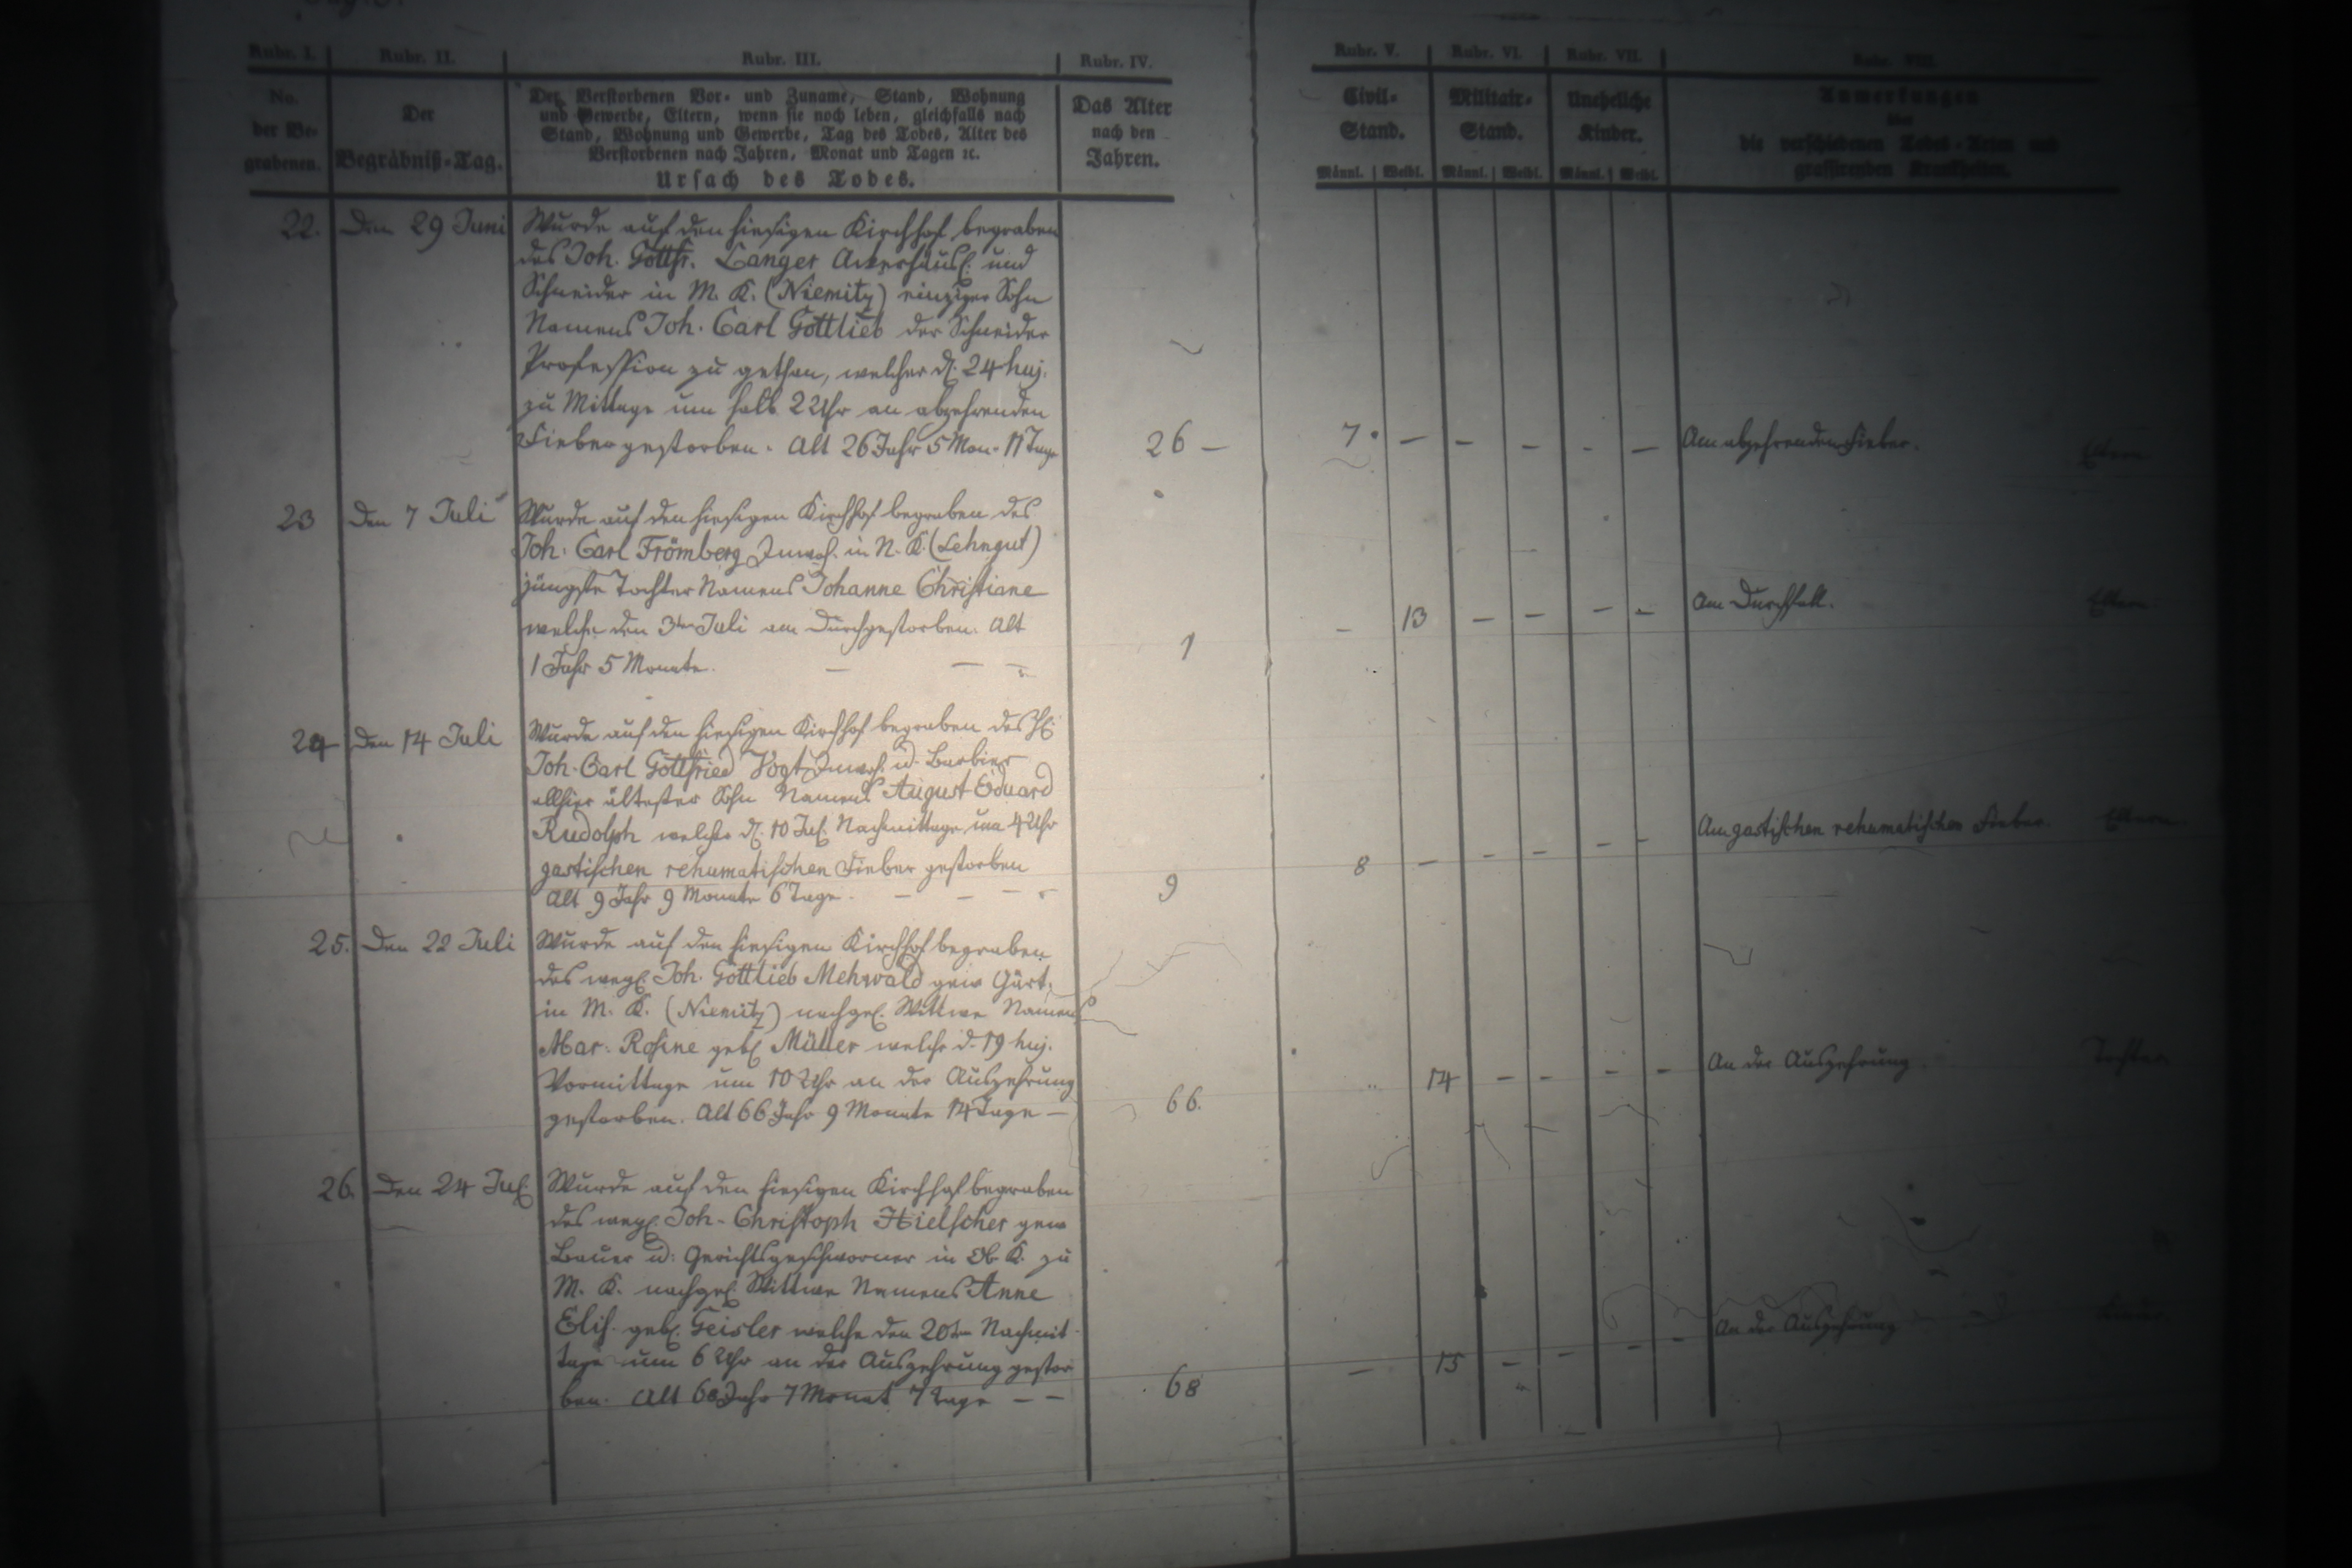 Rubr. I.
Rubr. II.
Rubr. III.
Rubr. IV.
Rubr. V.
Rubr. VI.
Rubr. VII.
Rubr. VIII.
No.
der Be-
grabenen.
Der
Begräbniß-Tag.
Der Verstorbenen Vor- und Zuname, Stand, Wohnung
und Gewerbe, Eltern, wenn sie noch leben, gleichfalls nach
Stand, Wohnung und Gewerbe, Tag des Todes, Alter des
Verstorbenen nach Jahren, Monat und Tagen ꝛc.
Ursach des Todes.
Das Alter
nach den
Jahren.
Civil-
Stand.
Männl. Weibl.
Militair-
Stand.
Männl. Weibl.
Uneheliche
Kinder.
Männl. Weibl.
Anmerkungen
über
die verschiedenen Todes-Arten und
grassirenden Krankheiten.
22. Den 29 Juni
Wurde auf den hiesigen Kirchhof begraben
des Joh. Gottfr. Langer Ackerhäusl. und
Schneider in M. K. (Niemitz) einziger Sohn
Namens Joh. Carl Gottlieb der Schneider
Profession zu gethan, welcher d. 24 huj.
zu Mittage um halb 2 Uhr an abzehrenden
Fieber gestorben. Alt 26 Jahr 5 Mon. 11 Tage
26 —
7. — — — - —
Am abzehrenden Fieber.
Eltern
23 Den 7 Juli
Wurde auf den hiesigen Kirchhof begraben des
Joh. Carl Frömberg Inwoh. in N. K. (Lehngut)
jüngste Tochter Namens Johanne Christiane
welche den 3ten Juli am Durchgestorben. Alt
1 Jahr 5 Monate. — — -
1
— 13 — — — —
Am Durchfall.
Eltern
24 Den 14 Juli
Wurde auf den hiesigen Kirchhof begraben des H.
Joh. Carl Gottfried Vogt Inwoh. u. Barbier
allhier ältester Sohn Namens August Eduard
Rudolph welcher d. 10 Jul. Nachmittage um 4 Uhr
gastischen rehumatischen Fieber gestorben
Alt 9 Jahr 9 Monate 6 Tage. — — -
9
8 — - — - -
Am gastischen rehumatischen Fieber.
Eltern
25. Den 22 Juli
Wurde auf den hiesigen Kirchhof begraben
des weyl. Joh. Gottlieb Mehwald gew Gärt.
in M. K. (Niemitz) nachgel. Wittwe Namens
Mar. Rosine geb. Müller welche d. 19 huj.
Vormittage um 10 Uhr an der Auszehrung
gestorben. Alt 66 Jahr 9 Monate 14 Tage —
66.
" 14 — — - —
An der Auszehrung.
Tochter
26. Den 24 Jul.
Wurde auf den hiesigen Kirchhof begraben
des weyl. Joh. Christoph Hielscher gew
Bauer u. Gerichtsgeschworner in Ob. K. zu
M. K. nachgel. Wittwe Namens Anne
Elis. geb. Geisler welche den 20ten Nachmit
tage um 6 Uhr an der Auszehrung gestor
ben. Alt 68 Jahr 7 Monat 7 Tage — —
68
— 15 — — - —
An der Auszehrung